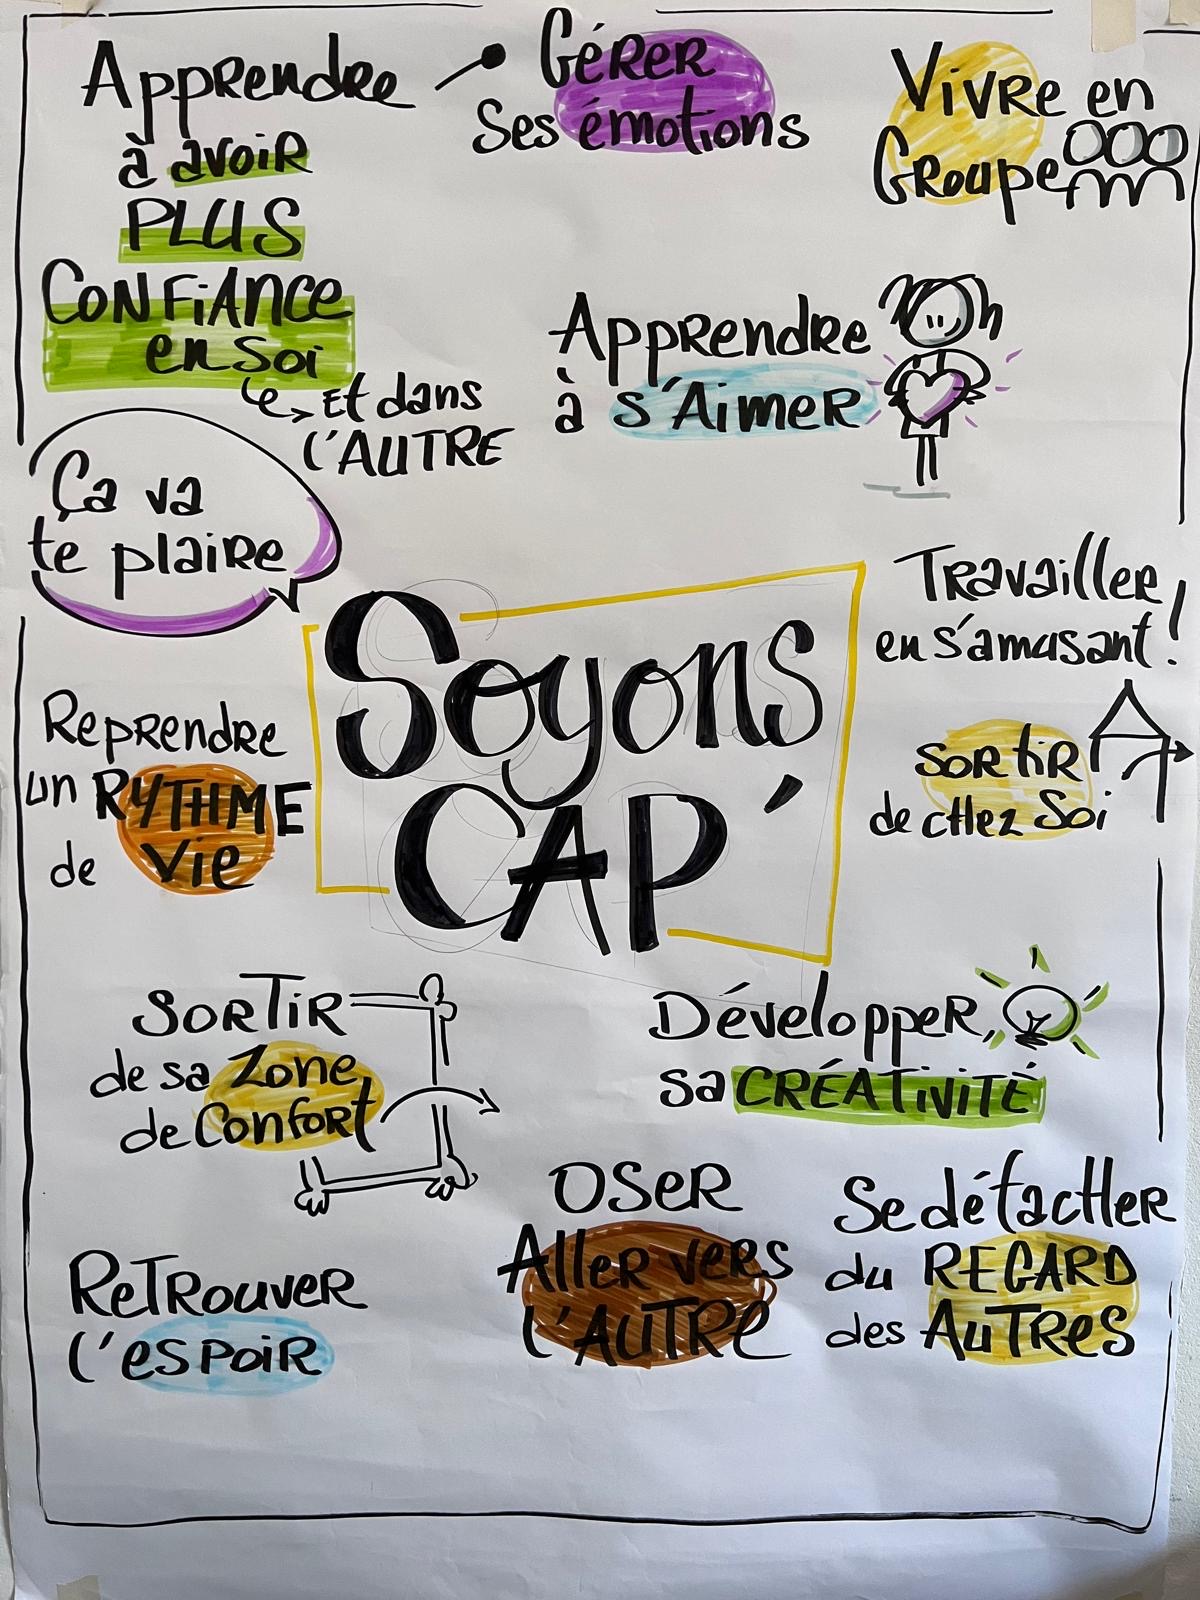 Apprendre
à avoir
PLUS
CONFiANce
en soi
et dans
l'AUTRE
Gérer
Ses émotions
Vivre en
Groupe
Apprendre
à s'Aimer
Ça va
te plaire
Travailler
en s'amusant!
Soyons
CAP'
Reprendre
un RYTHME
de Vie
Sortir
de chez Soi
Sortir
de sa Zone
de Confort
Développer
sa CRÉATiViTÉ
OSER
Aller vers
l'AUTRE
Se détacher
du REGARD
des AUTRES
Retrouver
l'espoir